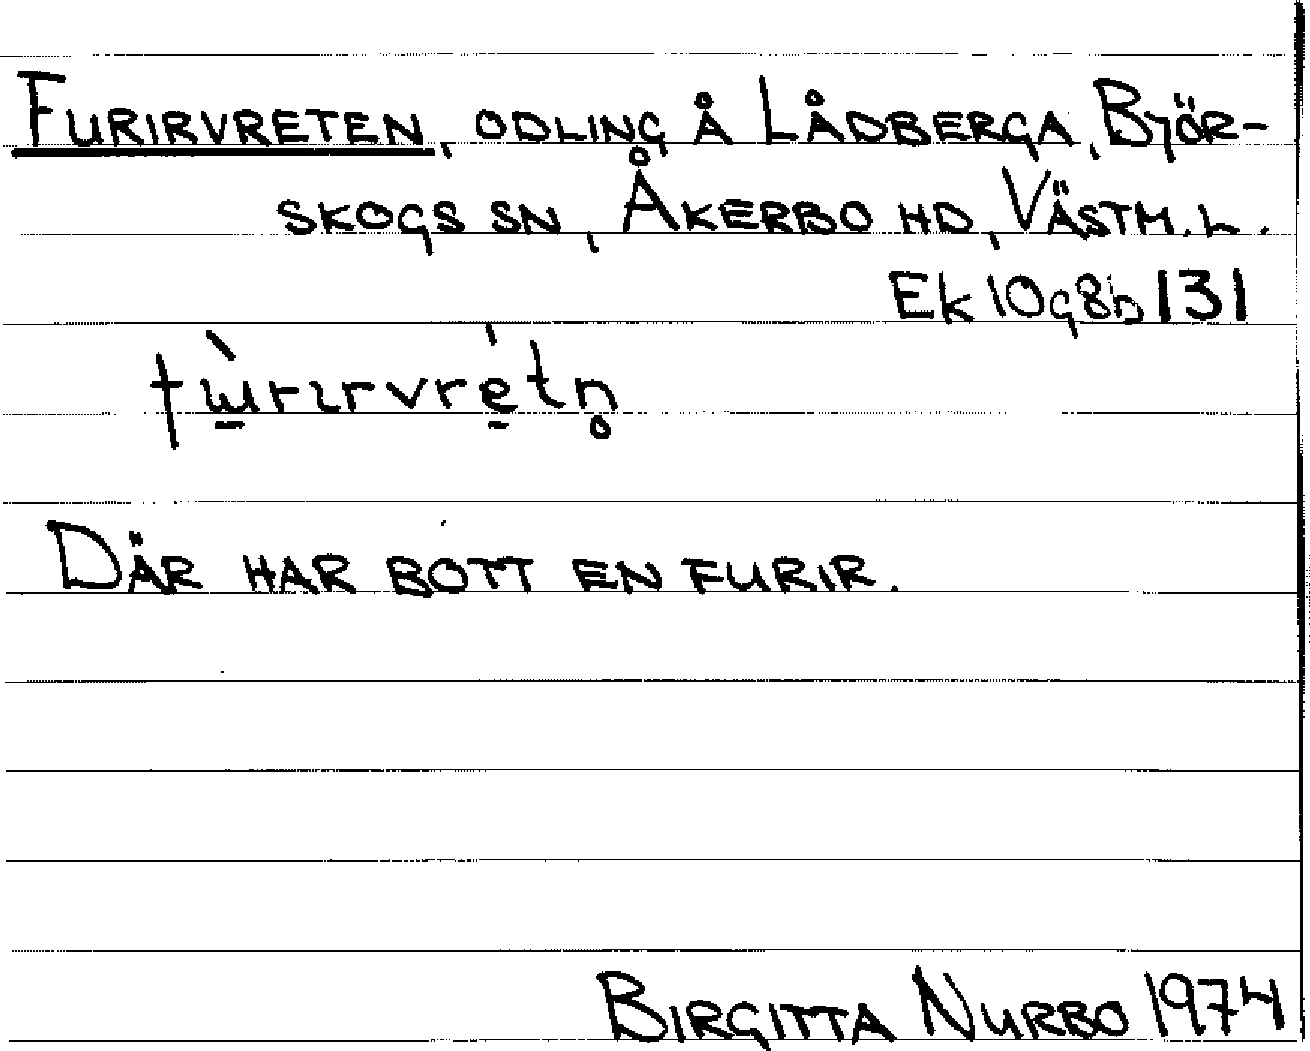 FURIRVRETEN, ODLING Å LÅDBERGA, BJÖR-
SKOGS SN, ÅKERBO HD, VÄSTM. L.
Ek 10g8b 131
fɯ̠̀rırvré̠tn̥
DÄR HAR BOTT EN FURIR.
BIRGITTA NURBO 1974